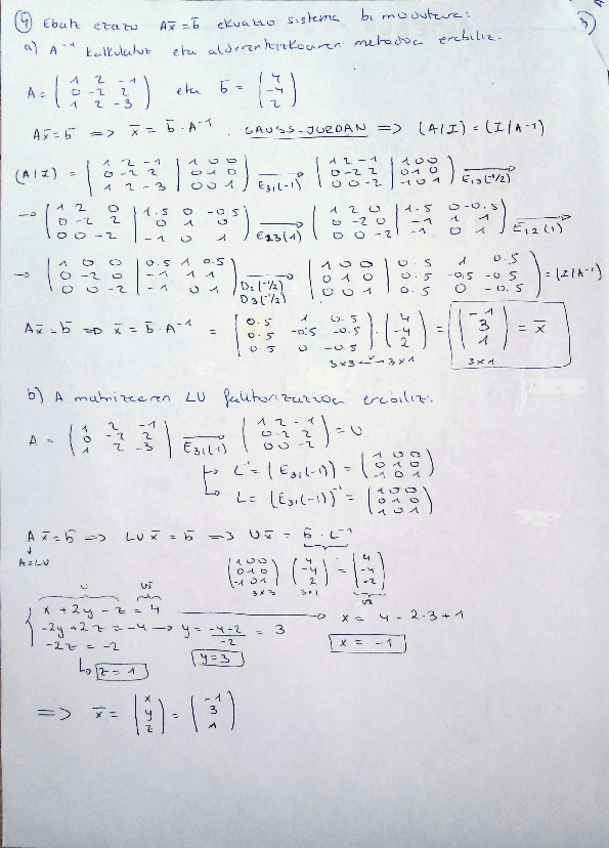 3)
④ Ebatz ezazu Ax̄=b̄ ekuazio sistema bi modutara:
a) A⁻¹ kalkulatuz eta alderantzizkoaren metodoa erabiliz.
A = (1 2 -1 / 0 -2 2 / 1 2 -3) eta b̄ = (4 / -4 / 2)
Ax̄=b̄ => x̄ = b̄·A⁻¹. GAUSS-JORDAN => (A/I) = (I/A⁻¹)
(A|I) = (1 2 -1 / 0 -2 2 / 1 2 -3 | 1 0 0 / 0 1 0 / 0 0 1) E₃₁(-1) → (1 2 -1 / 0 -2 2 / 0 0 -2 | 1 0 0 / 0 1 0 / -1 0 1) E₁₃(-1/2) →
→ (1 2 0 / 0 -2 2 / 0 0 -2 | 1.5 0 -0.5 / 0 1 0 / -1 0 1) E₂₃(1) → (1 2 0 / 0 -2 0 / 0 0 -2 | 1.5 0 -0.5 / -1 1 1 / -1 0 1) E₁₂(1) →
→ (1 0 0 / 0 -2 0 / 0 0 -2 | 0.5 1 0.5 / -1 1 1 / -1 0 1) D₂(-1/2) D₃(-1/2) → (1 0 0 / 0 1 0 / 0 0 1 | 0.5 1 0.5 / 0.5 -0.5 -0.5 / 0.5 0 -0.5) = (I/A⁻¹)
Ax̄=b̄ => x̄ = b̄·A⁻¹ = (0.5 1 0.5 / 0.5 -0.5 -0.5 / 0.5 0 -0.5) · (4 / -4 / 2) = (-1 / 3 / 1) = x̄
3×3 3×1 3×1
b) A matrizearen LU faktorizazioa erabiliz.
A = (1 2 -1 / 0 -2 2 / 1 2 -3) E₃₁(-1) → (1 2 -1 / 0 -2 2 / 0 0 -2) = U
↳ L⁻¹ = (E₃₁(-1)) = (1 0 0 / 0 1 0 / -1 0 1)
↳ L = (E₃₁(-1))⁻¹ = (1 0 0 / 0 1 0 / 1 0 1)
Ax̄=b̄ => LUx̄ = b̄ => Ux̄ = b̄·L⁻¹
↓
A=LU
(1 0 0 / 0 1 0 / -1 0 1) (4 / -4 / 2) = (4 / -4 / -2)
3×3 3×1 Ux̄
U Ux̄
x + 2y - z = 4 → x = 4 - 2·3 + 1
-2y + 2z = -4 → y = (-4-2)/-2 = 3 x = -1
-2z = -2 y=3
↳ z=1
=> x̄ = (x / y / z) = (-1 / 3 / 1)